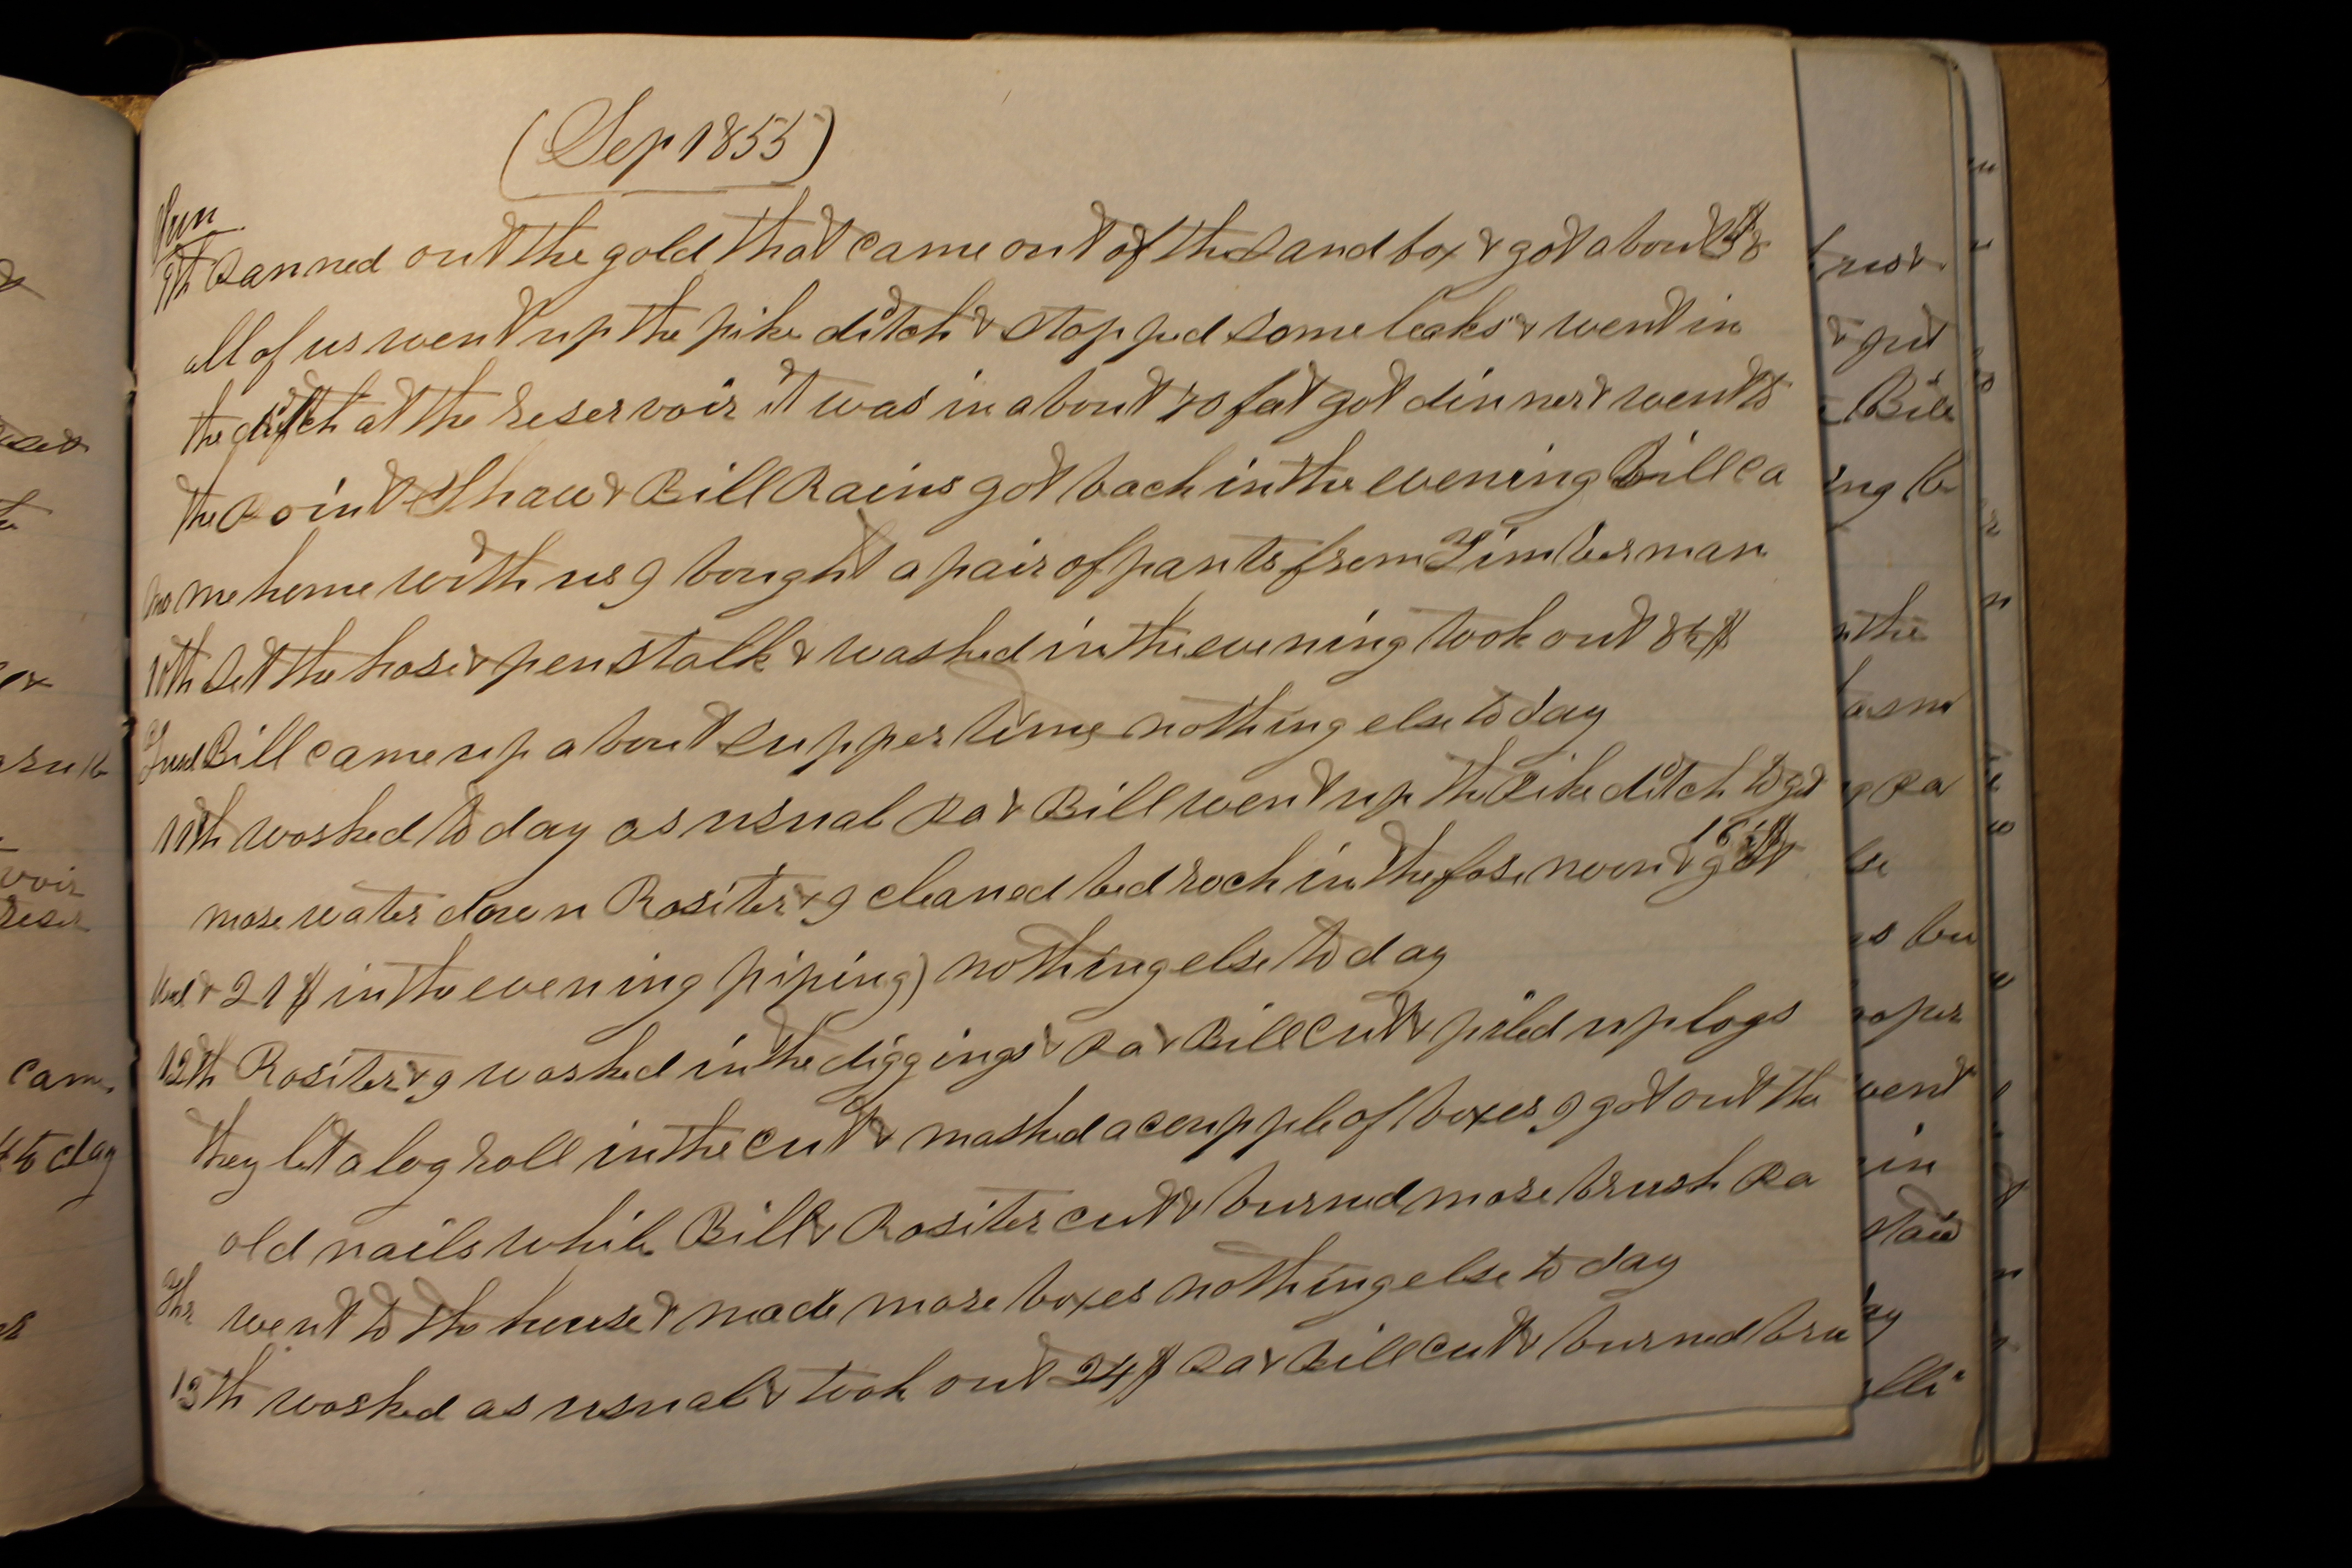 (Sep 1855)
Sun
9th Panned out the gold that came out of the sand box & got about &
all of us went up the pike ditch & stopped some leaks & went in
the ditch at the reservoir it was in about feet got dinner & went to
the Point Shaw & Bill Rains got back in the evening Bill ca
me home with us I bought a pair of pants from Timberman
10th Set the hose & penstalk & washed in the evening took out $
Tues Bill came up about supper time nothing else to day
11th washed to day as usual Pa & Bill went up the Pike ditch to get
more water down Rositer & I cleaned bed rock in the fore noon & got
Wed & 21$ in the evening piping) nothing else to day
12th Rositer & I washed in the diggings & Pa & Bill cut & piled up logs
they let a log roll in the cut & mashed a coupple of boxes I got out the
old nails while Bill & Rositer cut & burned more brush Pa
Thr went to the house & made more boxes nothing else to day
13th washed as usual & took out 24$ Pa & Bill cut & burned bru